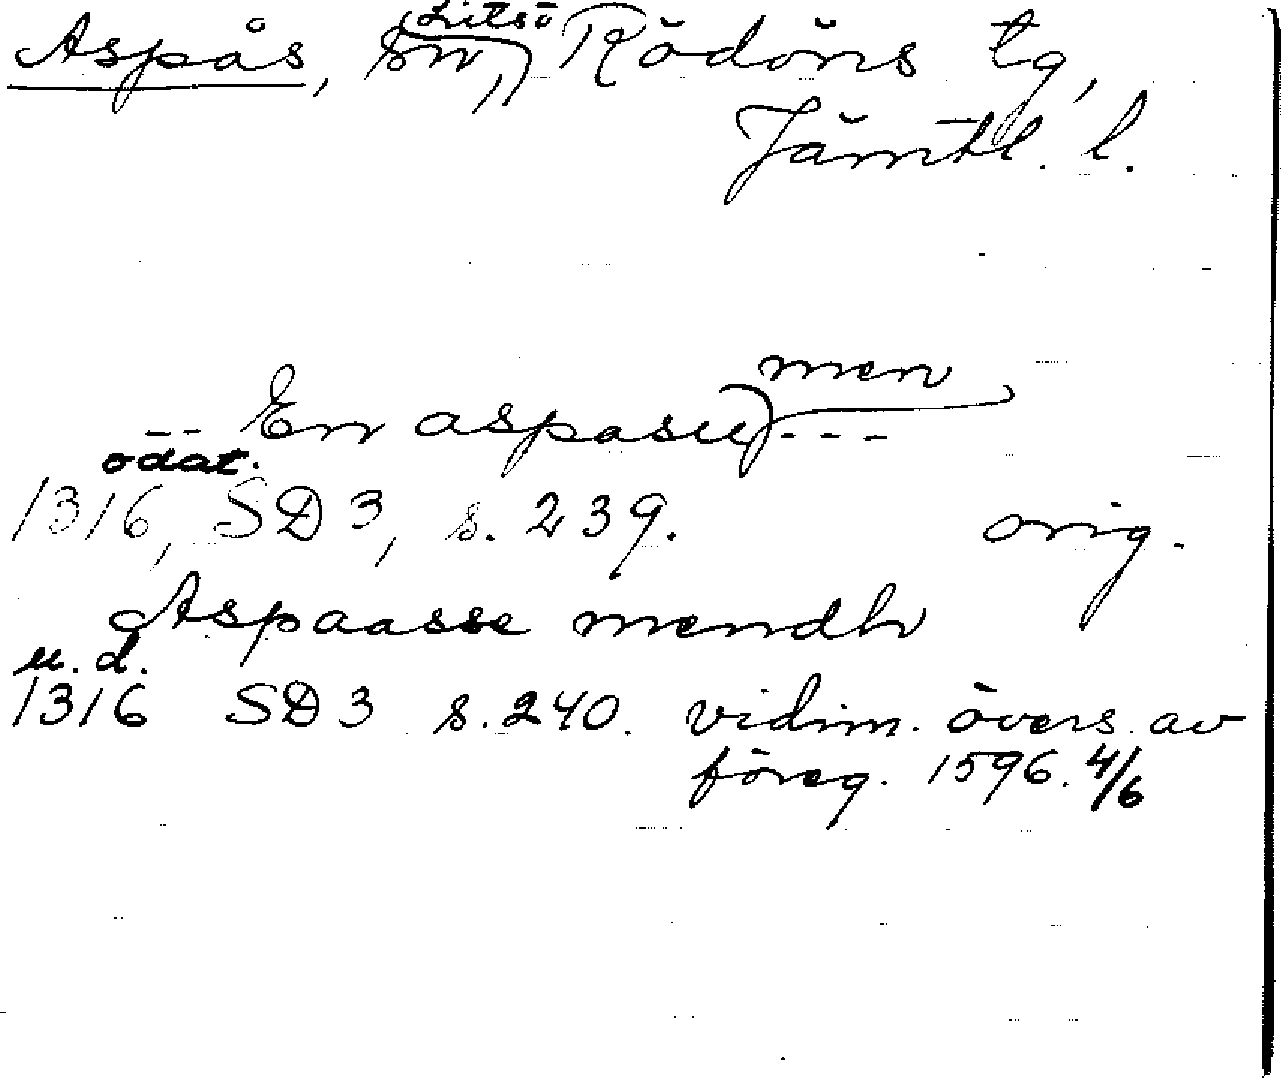 Aspås, sn, Litsö Rödöns tg,
Jämtl. l.
-- En aspasu men ---
odat.
1316, SD 3, s. 239. orig.
Aspaasse mendh
u. d.
1316 SD 3 s. 240. vidim. övers. av
föreg. 1596. 4/6